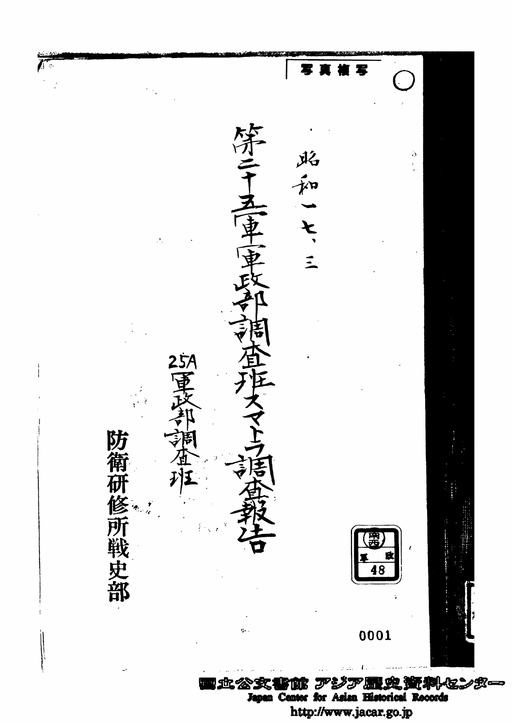 写真複写
昭和一七、三
第二十五軍軍政部調査班スマトラ調査報告
25A軍政部調査班
防衛研修所戦史部
軍政
48
0001
国立公文書館 アジア歴史資料センター
Japan Center for Asian Historical Records
http://www.jacar.go.jp